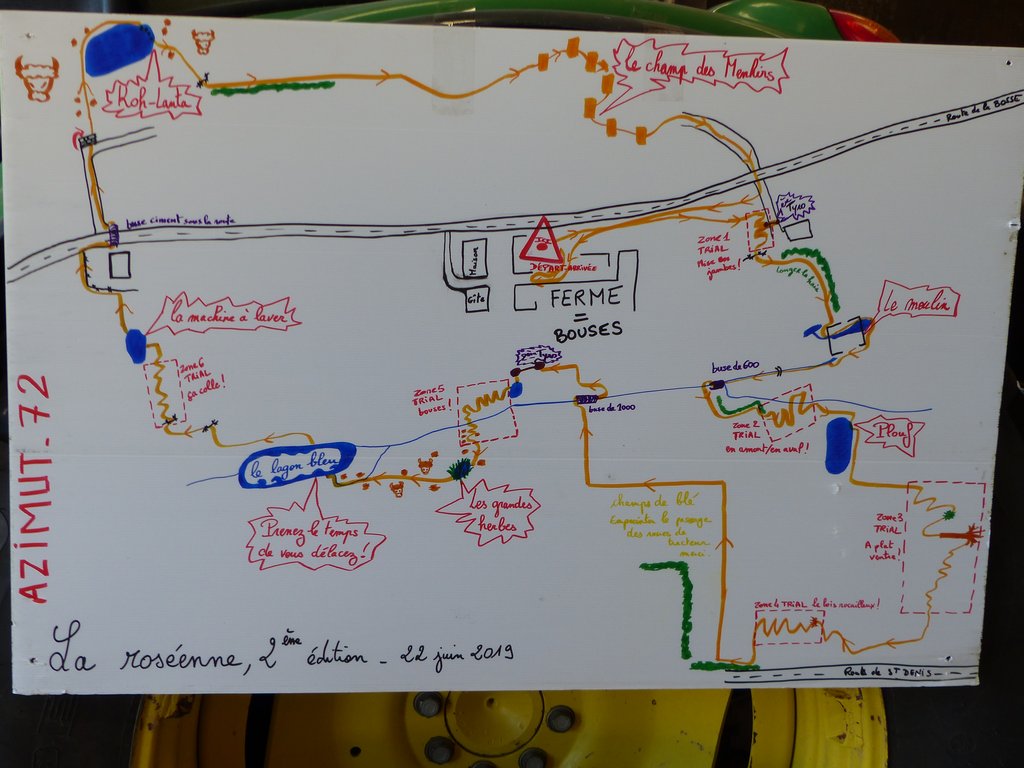 Koh-Lanta
Le champ des Menhirs
Route de la BOSSE
buse ciment sous la route
Maison
Gîte
DÉPART-ARRIVÉE
FERME
=
BOUSES
Zone 1
TRIAL
Mise en
jambes!
Tyro
Longer la haie
Le moulin
La machine à laver
Zone 6
TRIAL
ça colle!
Zone 5
TRIAL
bouses!
Tyro
buse de 600
buse de 1000
Zone 2
TRIAL
en amont/en aval!
Plouf
le lagon bleu
Prenez le temps
de vous délacez!
Les grandes
herbes
champs de blé
Emprunter le passage
des roues de
tracteur
merci.
Zone 3
TRIAL
A plat
ventre!
Zone 4 TRIAL le bois rocailleux!
Route de ST DENIS
AZIMUT.72
La roséenne, 2ème édition - 22 juin 2019